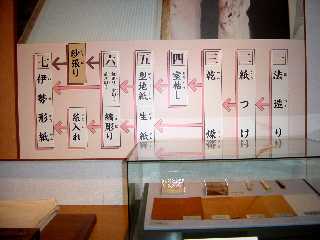 一 法造り
二 紙つけ
三 乾燥
四 室枯し
五 型地紙
生紙
六
縞彫り
紗張り
糸入れ
七 伊勢形紙